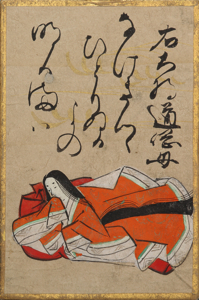 右大将道綱母
なけきつゝ
ひとりぬる
よの
明るまは